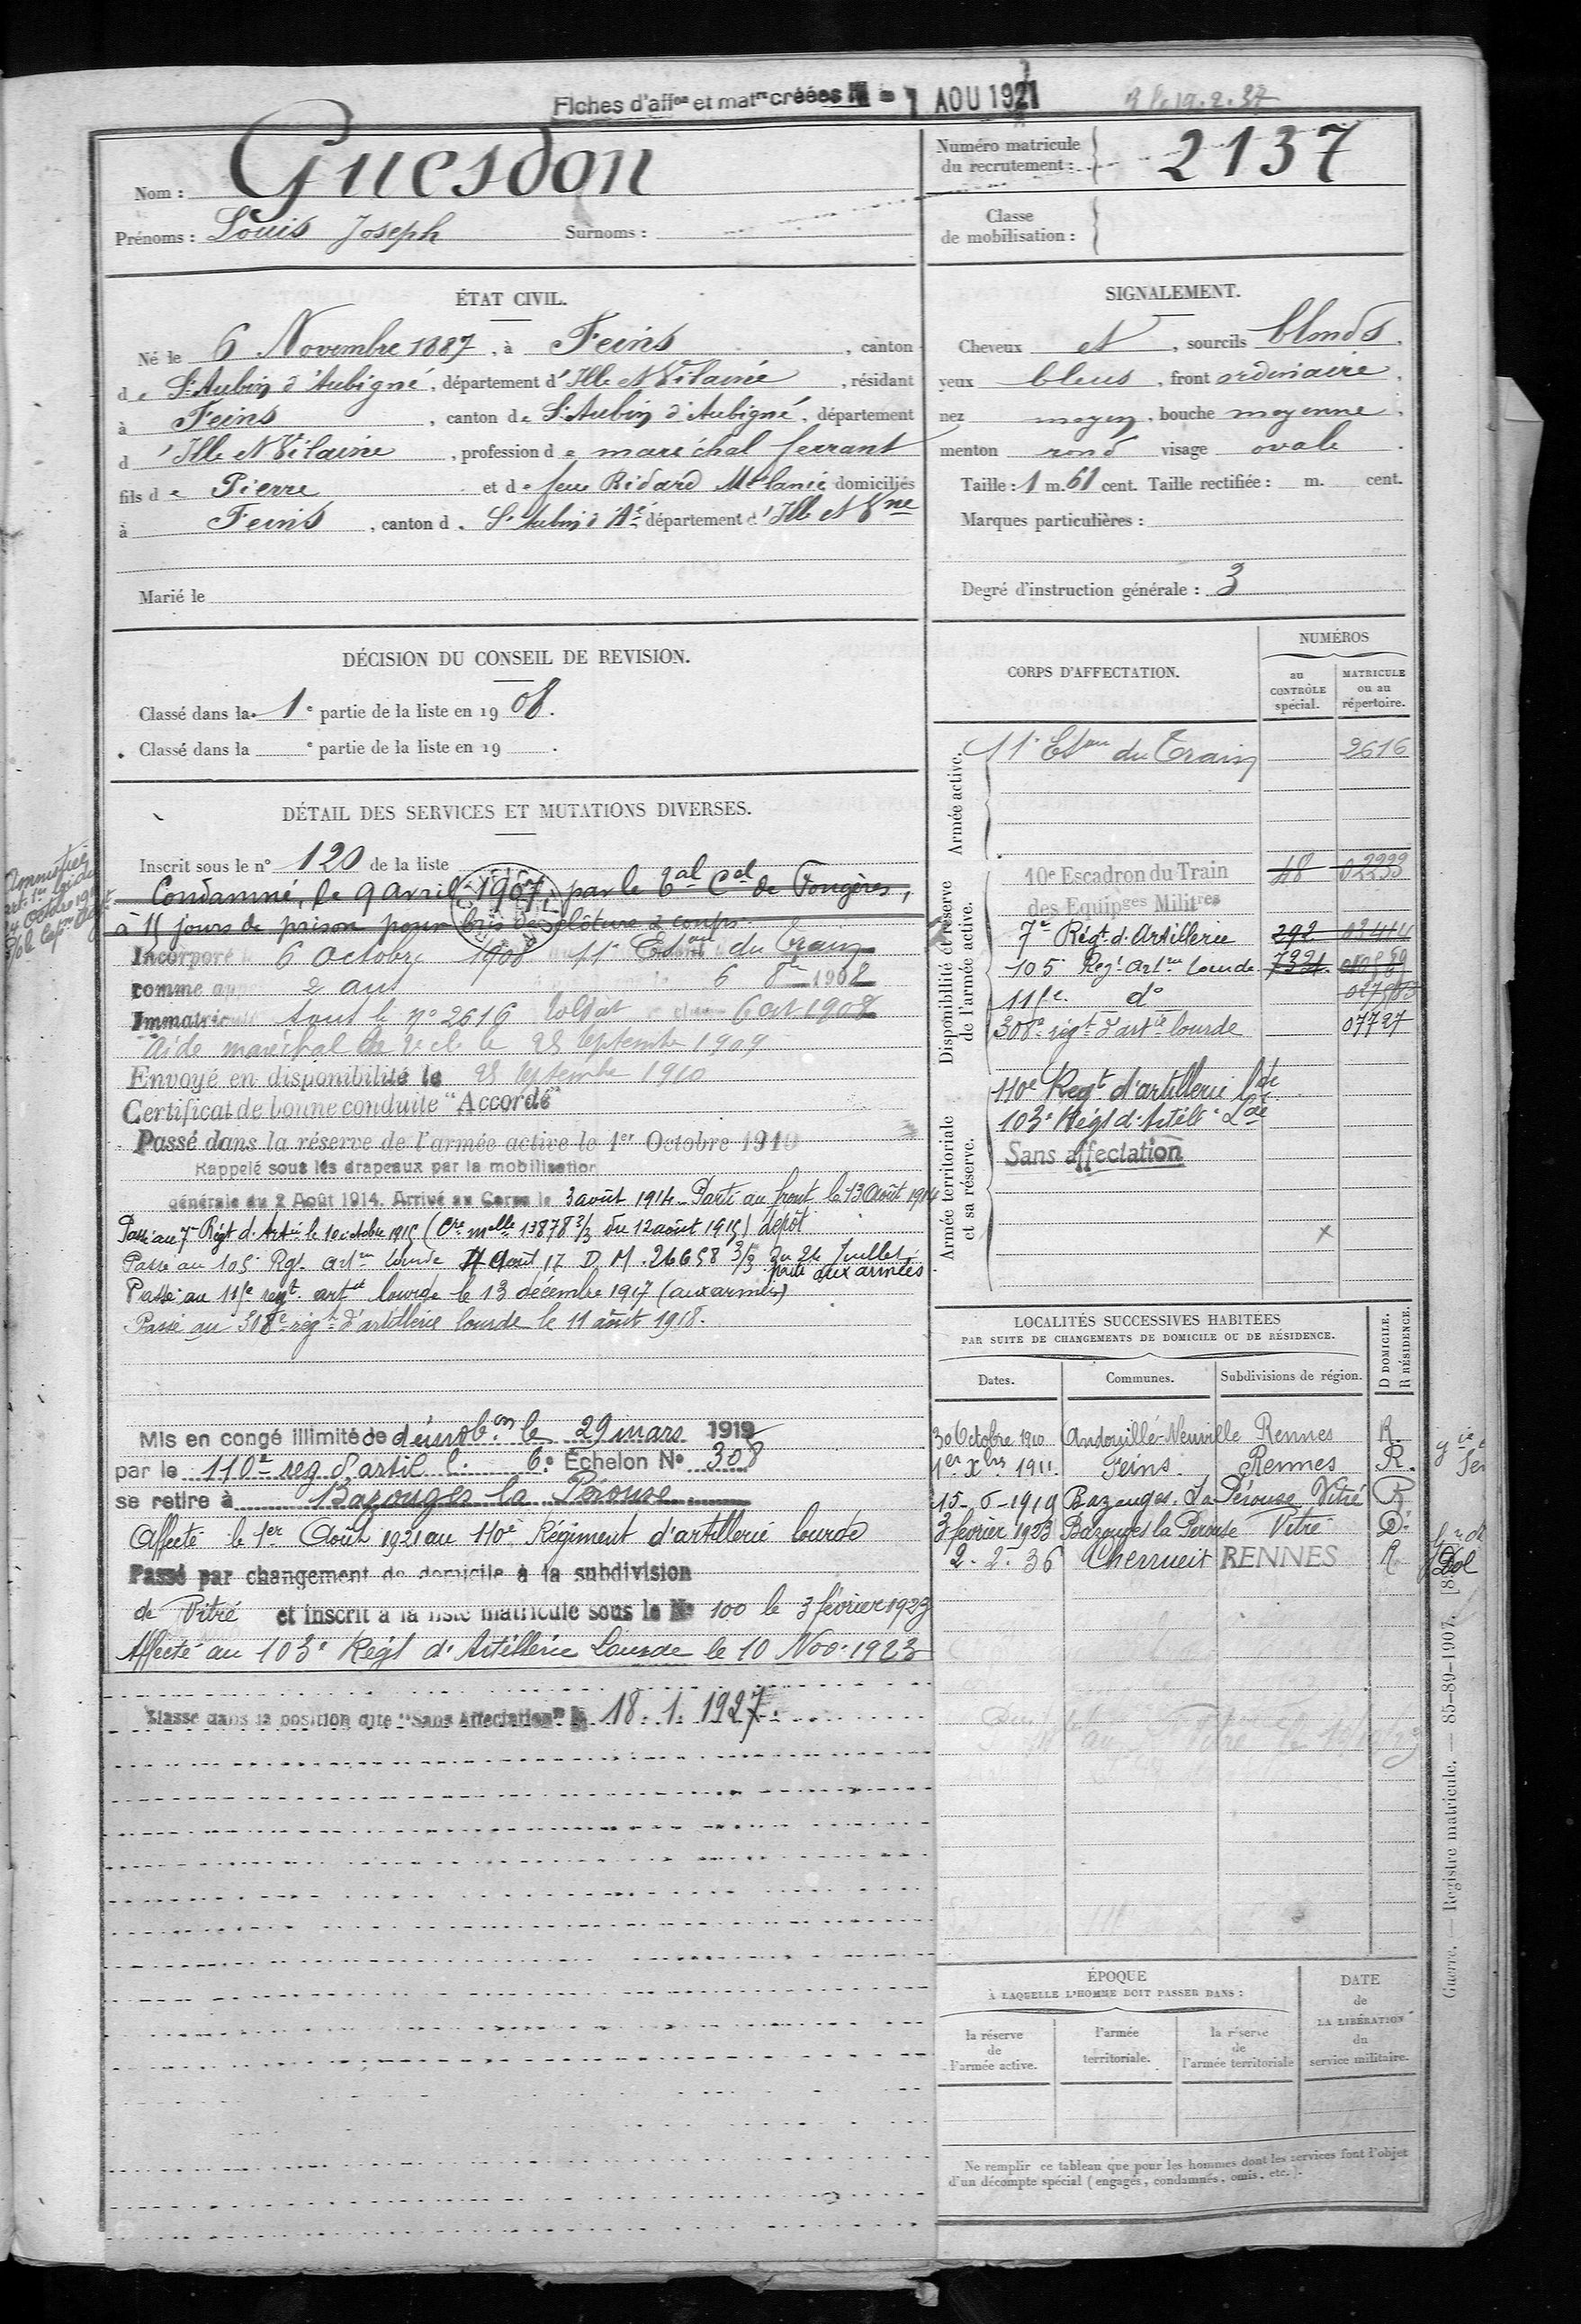 Fiches d'affon et matre créées le - 1 AOU 1921
Nom : Guesdon
Prénoms : Louis Joseph Surnoms :
Numéro matricule
du recrutement : 2137
Classe
de mobilisation :
ÉTAT CIVIL.
Né le 6 Novembre 1887, à Feins, canton
de St Aubin d'Aubigné, département d'Ille et Vilaine, résidant
à Feins, canton de St Aubin d'Aubigné, département
d'Ille et Vilaine, profession de maréchal ferrant
fils de Pierre et de feue Ridard Mélanie domiciliés
à Feins, canton d. St Aubin d'Aé département d'Ille et Vne
Marié le
SIGNALEMENT.
Cheveux et, sourcils blonds,
yeux bleus, front ordinaire,
nez moyen, bouche moyenne,
menton rond visage ovale.
Taille : 1 m. 61 cent. Taille rectifiée : m. cent.
Marques particulières :
Degré d'instruction générale : 3
DÉCISION DU CONSEIL DE REVISION.
Classé dans la 1e partie de la liste en 1908.
Classé dans la e partie de la liste en 19 .
DÉTAIL DES SERVICES ET MUTATIONS DIVERSES.
Inscrit sous le n° 120 de la liste
Condamné, le 9 avril 1907 par le Bal Cel de Fougères,
à 15 jours de prison pour bris de clôture & coups
Incorporé 6 Octobre 1908 11e Eson du Train
comme 2 ans 6 8bre 1908
Immatriculé sous le n° 2616 Soldat 6 oct 1908
Aide maréchal le 25 Septembre 1909
Envoyé en disponibilité le 25 Septembre 1910
Certificat de bonne conduite "Accordé"
Passé dans la réserve de l'armée active le 1er Octobre 1910
Rappelé sous les drapeaux par la mobilisation
générale du 2 Août 1914. Arrivé au Corps le 3 août 1914 - Parti au front le 13 Août 1914
Passé au 7e Régt d'Artie le 10 octobre 1915 (Cre melle 13878 2/3 du 12 août 1915) dépôt
Passé au 105e Rgt artie lourde Août 17 D. M. 26658 3/3 du 24 Juillet
parti aux armées
Passé au 115e regt artie lourde le 13 décembre 1917 (aux armées)
Passé au 308e régt d'artillerie lourde le 11 août 1918.
Mis en congé illimité de démobon le 29 mars 1919
par le 110e reg d'artil l. 6e Échelon N° 308
se retire à Bazouges la Pérouse
Affecté le 1er Août 1921 au 110e Régiment d'artillerie lourde
Passé par changement de domicile à la subdivision
de Vitré et inscrit à la liste matricule sous le N° 100 le 3 février 1923
Affecté au 103e Régt d'Artillerie Lourde le 10 Nov. 1923
Classé dans la position dite "Sans Affectation" le 18.1.1927.
CORPS D'AFFECTATION.
NUMÉROS
au
CONTRÔLE
spécial.
MATRICULE
ou au
répertoire.
Armée active.
11e Eson du Train 2616
Disponibilité et réserve
de l'armée active.
10e Escadron du Train 48 02999
des Equipges Militres
7e Régt d'Artillerie 292 02414
105e Regt Artie lourde 7321
115e do
308e régt d'artie lourde 07727
Armée territoriale
et sa réserve.
110e Regt d'artillerie lde
103e Régt d'Artille Lde
Sans affectation
LOCALITÉS SUCCESSIVES HABITÉES
PAR SUITE DE CHANGEMENTS DE DOMICILE OU DE RÉSIDENCE.
D DOMICILE.
R RÉSIDENCE.
Dates. Communes. Subdivisions de région.
30 Octobre 1910 Andouillé-Neuville Rennes R.
1er Xbre 1911. Feins. Rennes R.
15-6-1919 Bazouges. La Pérouse Vitré R
3 février 1923 Bazouges la Perouse Vitré D.
2.2.36 Cherrueix RENNES R
Dol
ÉPOQUE
À LAQUELLE L'HOMME DOIT PASSER DANS :
DATE
de
LA LIBÉRATION
du
service militaire.
la réserve
de
l'armée active.
l'armée
territoriale.
la réserve
de
l'armée territoriale
Ne remplir ce tableau que pour les hommes dont les services font l'objet
d'un décompte spécial (engagés, condamnés, omis, etc.).
Guerre. — Registre matricule. — 85-89-1907.